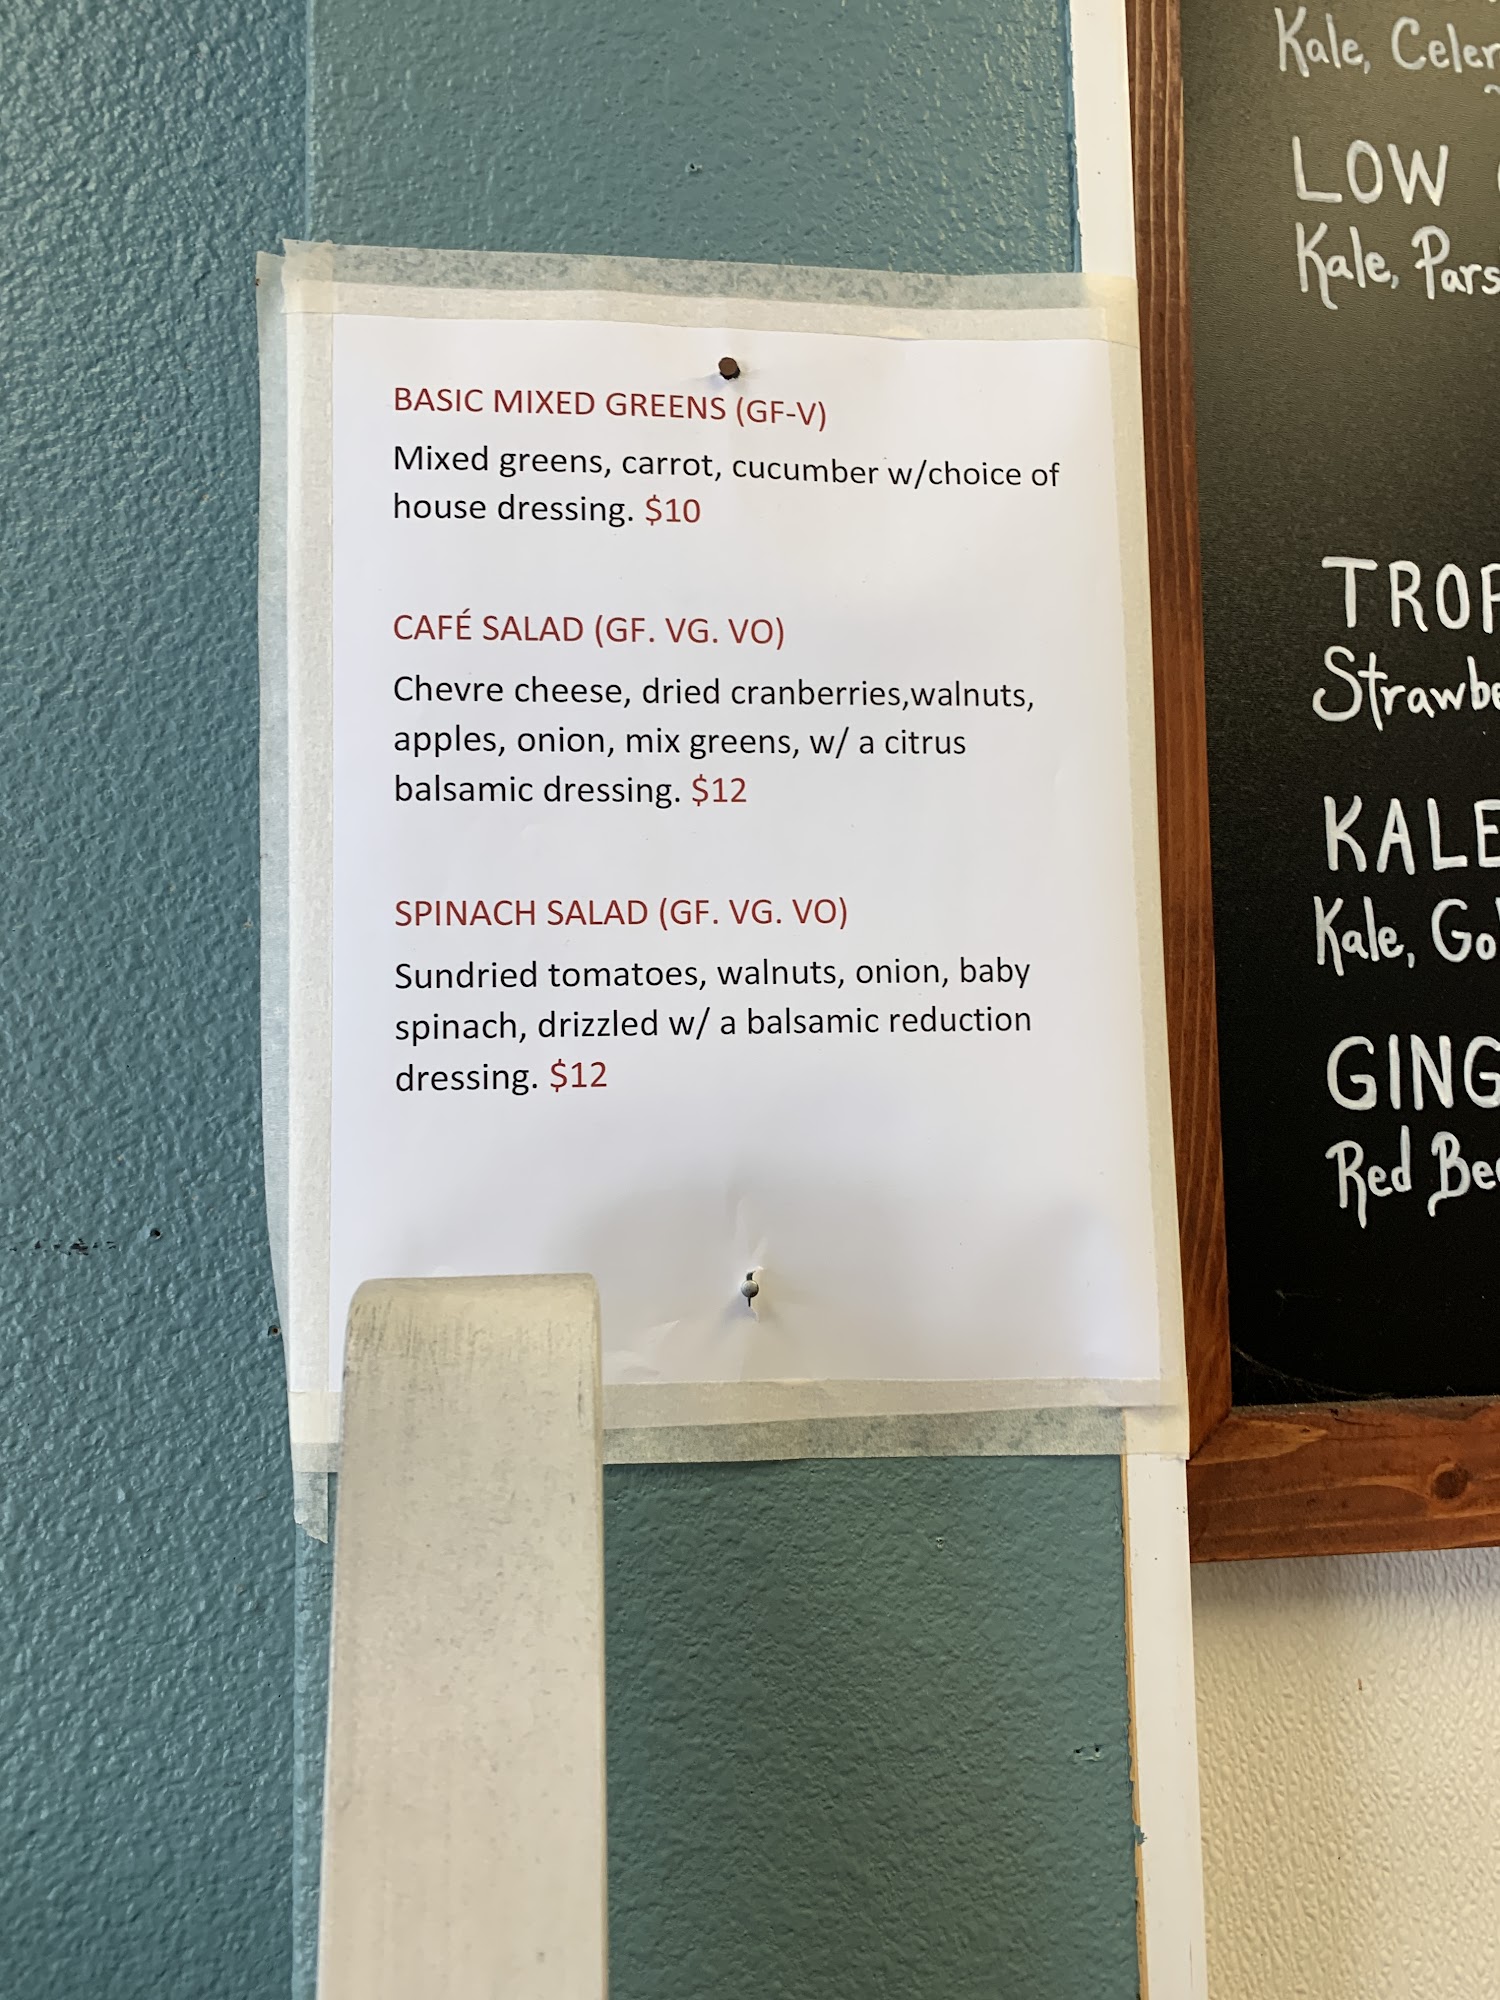 BASIC MIXED GREENS (GF-V)
Mixed greens, carrot, cucumber w/choice of
house dressing. $10
CAFÉ SALAD (GF. VG. VO)
Chevre cheese, dried cranberries,walnuts,
apples, onion, mix greens, w/ a citrus
balsamic dressing. $12
SPINACH SALAD (GF. VG. VO)
Sundried tomatoes, walnuts, onion, baby
spinach, drizzled w/ a balsamic reduction
dressing. $12
Kale,
LOW
Kale,
KALE
Kale,
Red